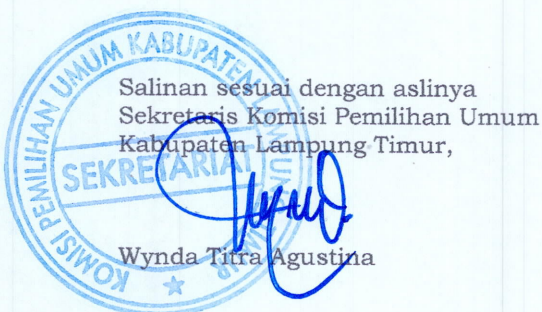 Salinan sesuai dengan aslinya
Sekretaris Komisi Pemilihan Umum
Kabupaten Lampung Timur,
Wynda Titra Agustina
KOMISI PEMILIHAN UMUM KABUPATEN LAMPUNG TIMUR
SEKRETARIAT